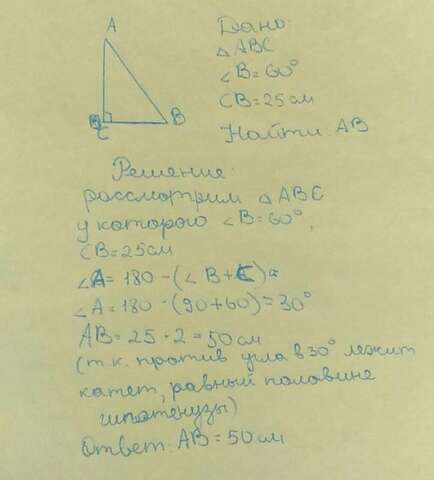 A
C
B
Дано:
△ABC
∠B=60°
CB=25см
Найти: AB
Решение:
рассмотрим △ABC
у которого ∠B=60°,
CB=25см
∠A=180-(∠B+C)=
∠A=180-(90+60)=30°
AB=25·2=50см
(т.к. против угла в 30° лежит
катет, равный половине
гипотенузы)
Ответ: AB=50см